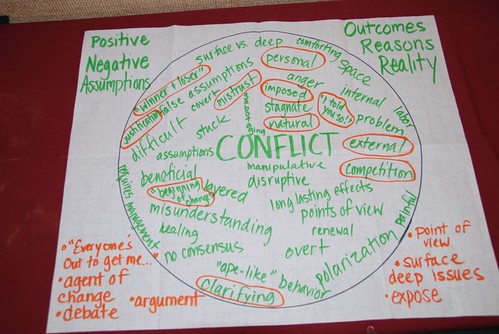 Positive
Negative
Assumptions
Outcomes
Reasons
Reality
surface vs. deep
comforting
personal
space
"winner + loser"
false assumptions
anger
internal
labor
covert
mistrust
imposed
"I told you so!"
problem
difficult
stuck
stagnate
natural
CONFLICT
external
assumptions
manipulative
competition
beneficial
disruptive
"beginning of change"
layered
long lasting effects
requires management
misunderstanding
points of view
painful
healing
renewal
no consensus
overt
polarization
"ape-like" behavior
clarifying
• "Everyone's
Out to get me..."
• agent of
change
• debate
• argument
• point of
view
• surface
deep issues
• expose